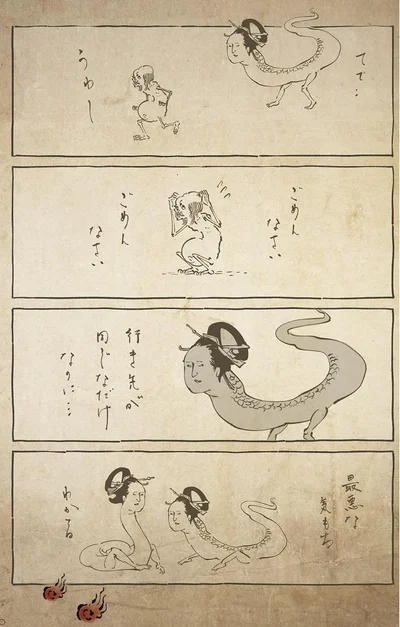 でで…
うわし
ごめん
なさい
ごめん
なさい
行き先が
同じなだけ
なのに…
最悪な
気もち
わかる